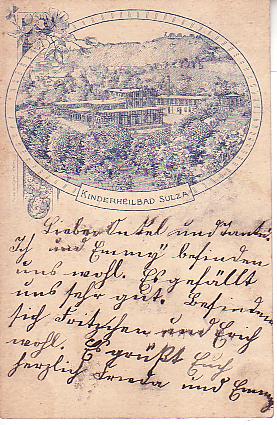 KINDERHEILBAD SULZA
Lieber Onkel und Tante
Ich und Emmy befinden
uns wohl. Es gefällt
uns sehr gut. Befinden
sich Fritzchen und Erich
wohl. Es grüßt Euch
herzlich Frieda und Emmy